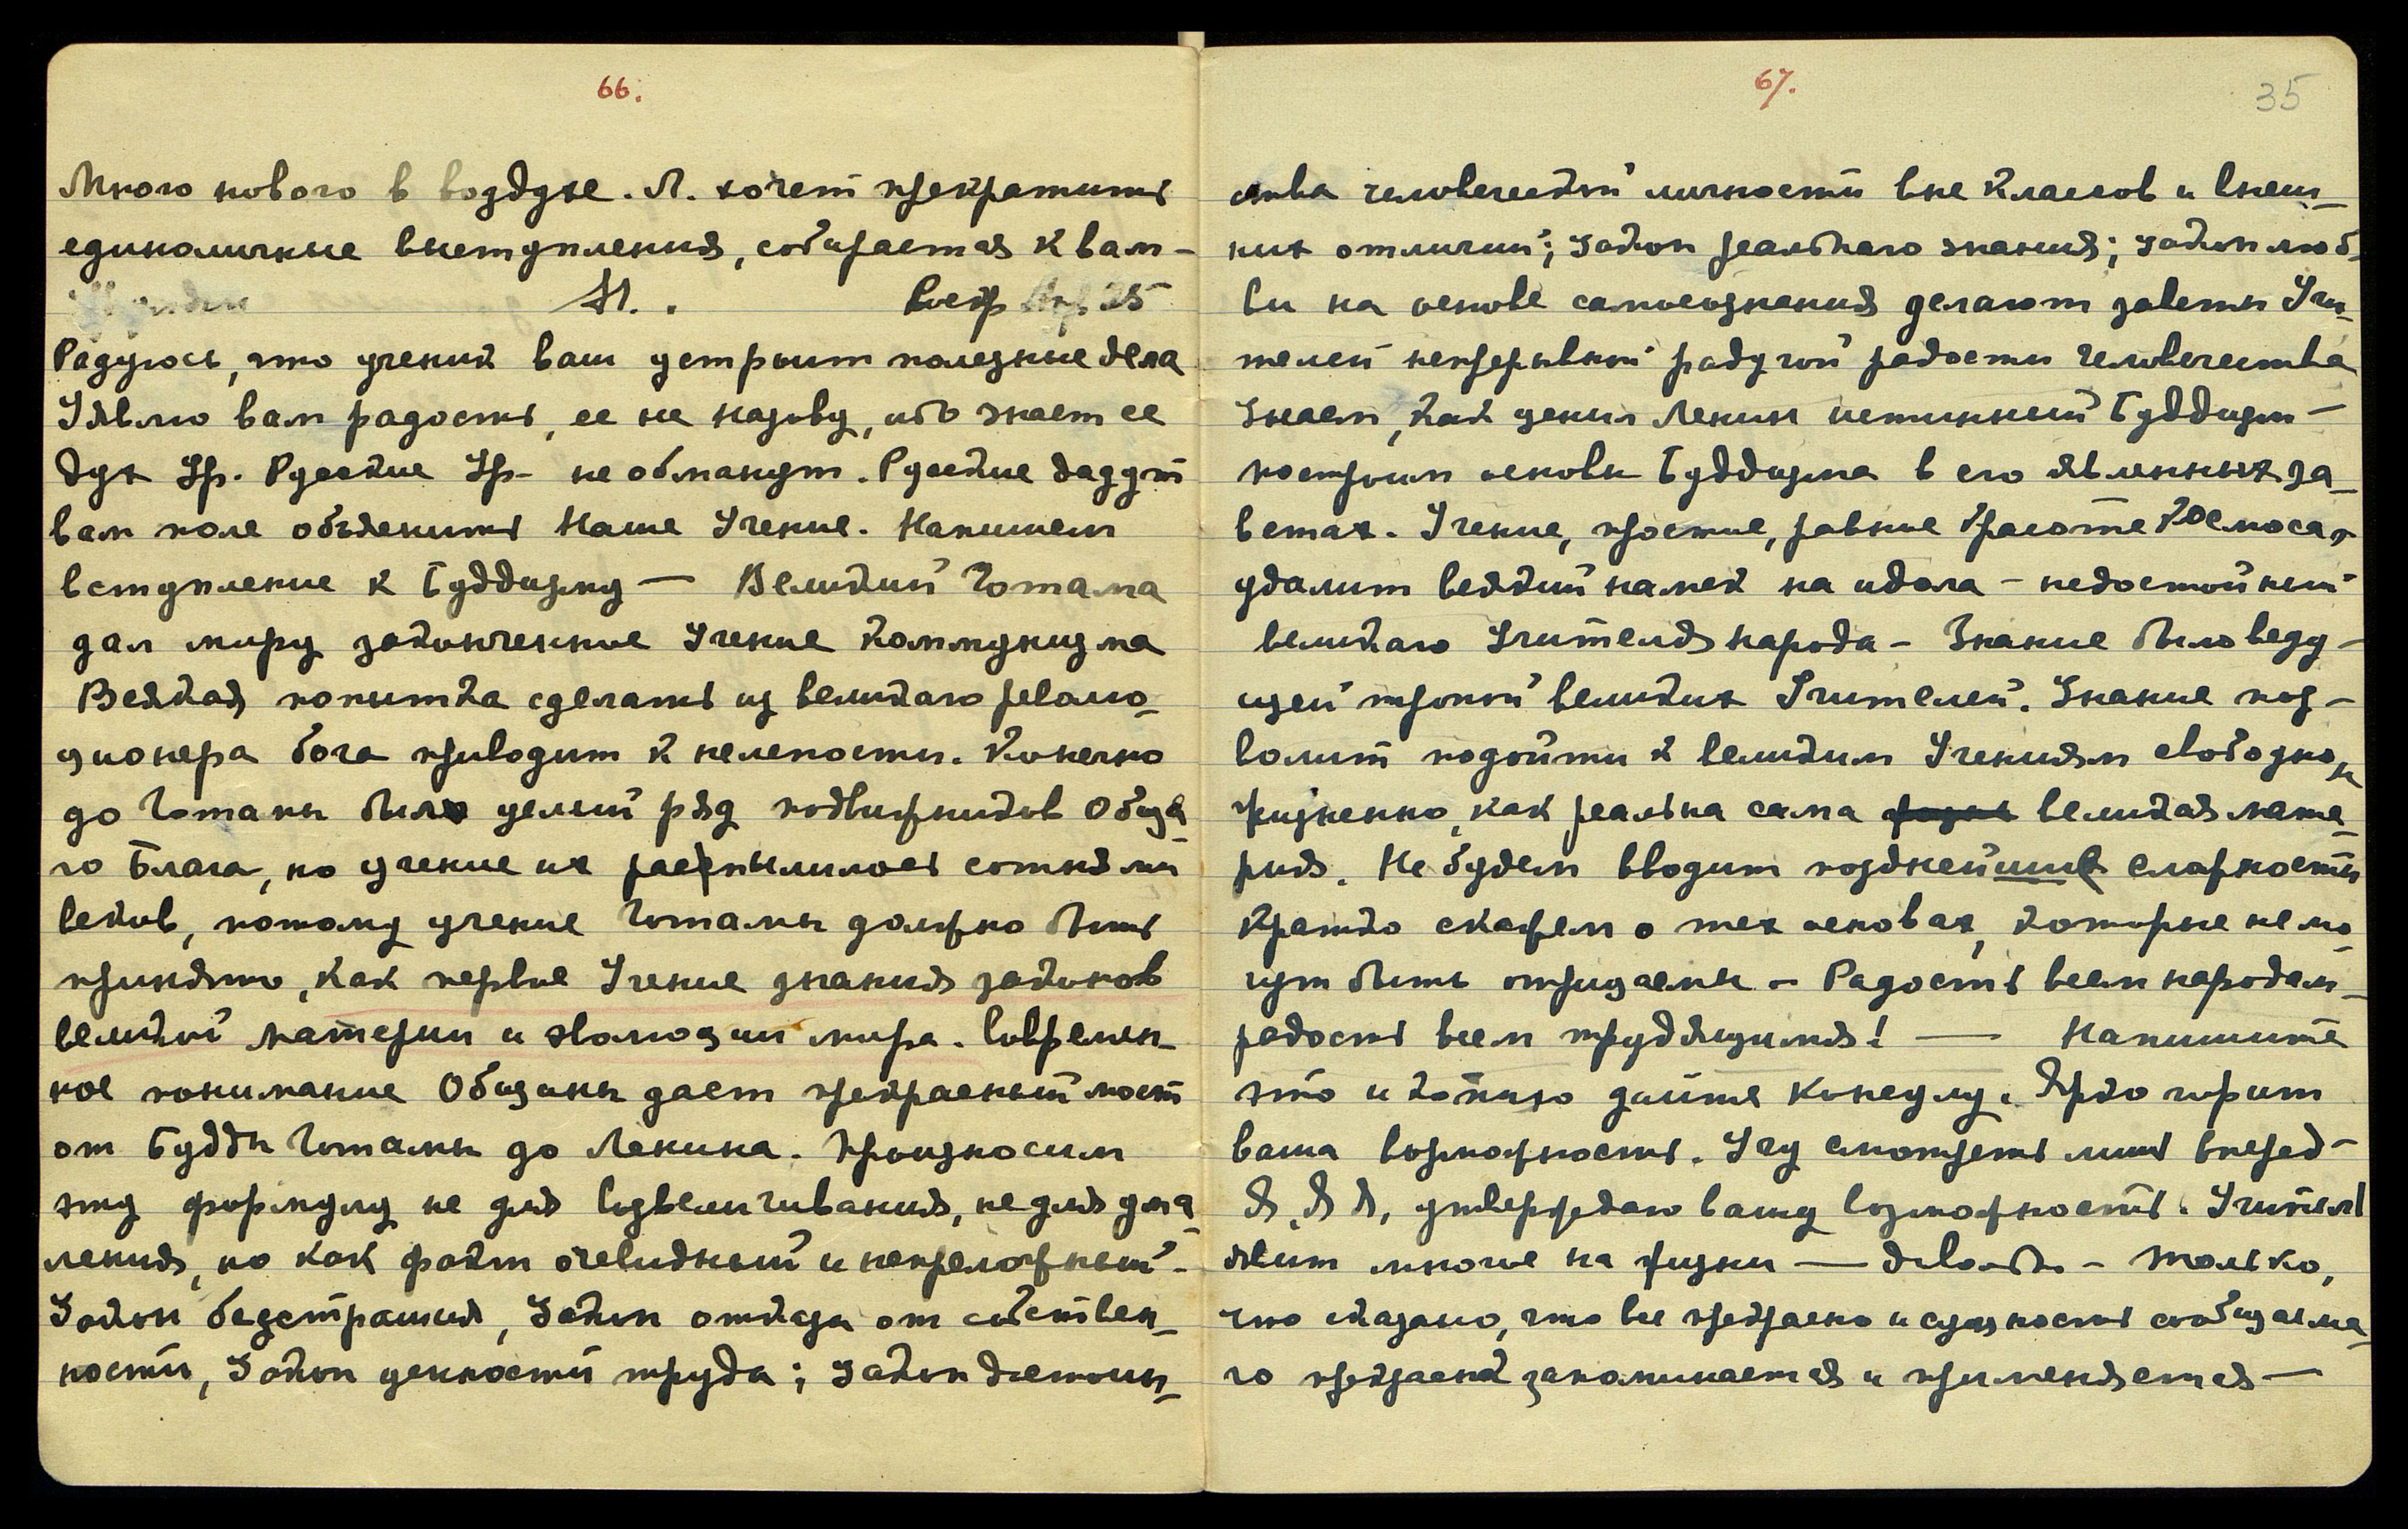 66.
Много нового в воздухе. Л. хочет прекратить
единоличные выступления, собирается к вам –
воскр Апр 25
Радуюсь, что ученик ваш устроит полезные дела
Уявлю вам радость, ее не назову, ибо знает ее
дух Ур. Русские Ур– не обманут. Русские дадут
вам поле объяснить Наше Учение. Напишем
вступление к Буддизму — Великий Готама
дал миру законченное Учение Коммунизма
Всякая попытка сделать из великаго револю–
ционера бога приводит к нелепости. Конечно
до Готамы был целый ряд подвижников Обща–
го Блага, но учение их распылилось сотнями
веков, потому учение Готамы должно быть
принято, как первое Учение знания законов
великой материи и эволюции мира. Современ–
ное понимание Общины дает прекрасный мост
от Будды Готамы до Ленина. Произносим
эту формулу не для возвеличивания, не для ума–
ления, но как факт очевидный и непреложный –
Закон бесстрашия, Закон отказа от собствен–
ности, Закон ценности труда; Закон достоин–
67.
35
ства человеческой личности вне классов и внеш–
них отличий; Закон реальнаго знания; закон люб–
ви на основе самосознания делают заветы Учи–
телей непрерывной радугой радости человечества
Знаем, как ценил Ленин истинный Буддизм –
построим основы Буддизма в его явленных за–
ветах. Учение, простое, равное красоте Космоса,
удалит всякий намек на идола – недостойный
великаго Учителя народа – Знание было веду–
щей тропой великих Учителей. Знание поз–
волит подойти к великим Учениям свободно, и
жизненно, как реальна сама великая мате–
рия. Не будем вводит позднейшие сложности
Кратко скажем о тех основах, которые не мо–
гут быть отрицаемы – Радость всем народам –
радость всем трудящимся! — Напишите
это и копию дайте Консулу. Ярко горит
ваша возможность. Учу смотреть лишь вперед –
Я, Я Я, утверждаю вашу возможность. Учитель
явит многое на жизни — довольно – только,
что сказано, что все прекрасно и сущность сообщаема–
го прекрасно запоминается и применяется —